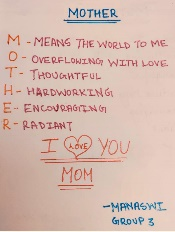 MOTHER
M - MEANS THE WORLD TO ME
O - OVERFLOWING WITH LOVE
T - THOUGHTFUL
H - HARDWORKING
E - ENCOURAGING
R - RADIANT
I LOVE YOU
MOM
- MANASWI
GROUP 3